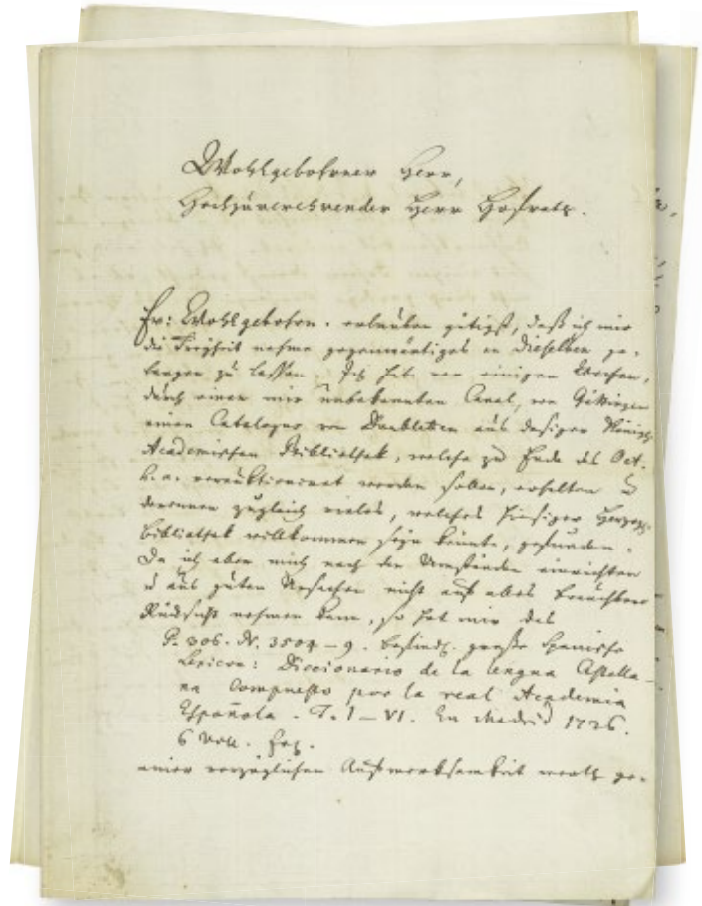 Wohlgebohrner Herr,
Hochzuverehrender Herr Hofrath.
Ew: Wohlgebohrn. erlauben gütigst, daß ich mir
die Freyheit nehme gegenwärtiges an Dieselben ge-
langen zu lassen. Ich habe vor einigen Wochen,
durch einen mir unbekannten Canal, von Göttingen
einen Catalogus von Doubletten aus dasiger Königl.
Academischen Bibliothek, welche zu Ende des Oct.
h. a. verauktioniret werden sollen, erhalten u
darinnen zugleich vieles, welches hiesiger Herzogl.
Bibliothek willkommen seyn könnte, gefunden.
Da ich aber mich nach den Umständen einrichten
u aus guten Ursachen nicht auf alles brauchbare
Rücksicht nehmen kann, so hat mir das
P. 306. N. 3504-9. befindl. große Spanische
Lexicon: Diccionario de la lengua Castella-
na compuesto por la real Academia
Española. T. I-VI. En Madrid 1726.
6 Voll. 
einer vorzüglichen Aufmerksamkeit werth ge-